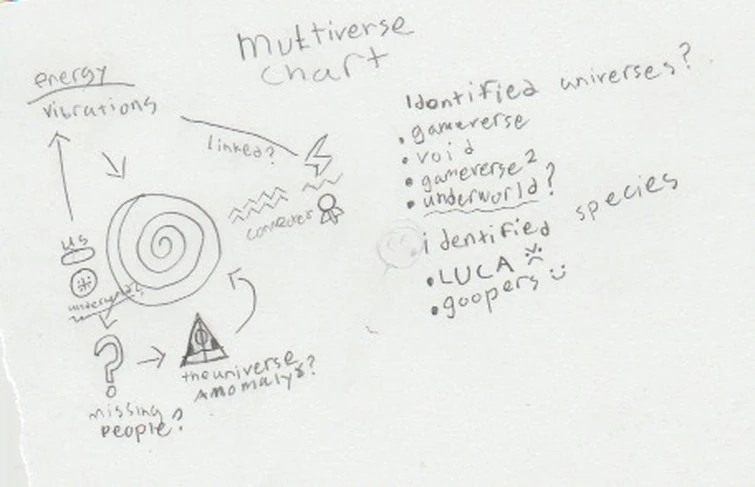 multiverse
chart
energy
vibrations
linked?
connecter
us
underworld
missing
people?
theuniverse
anomalys?
Identified universes?
• gameverse
• void
• gameverse 2
• underworld?
identified species
• LUCA
• goopers